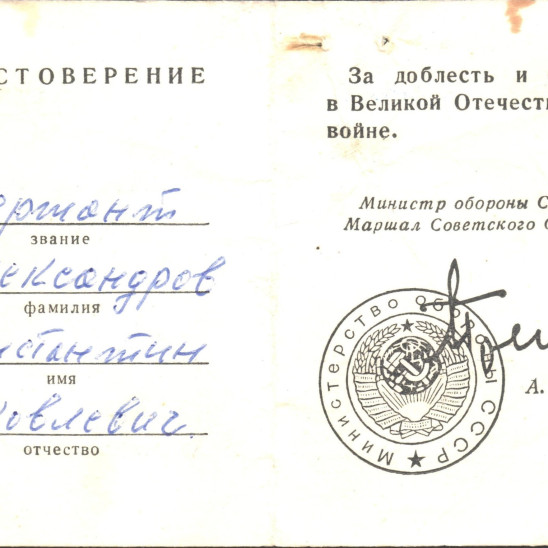 СТОВЕРЕНИЕ
ержант
звание
лександров
фамилия
нстантин
имя
ковлевич.
отчество
За доблесть и
в Великой Отечест
войне.
Министр обороны С
Маршал Советского С
Министерство Обороны СССР
А.